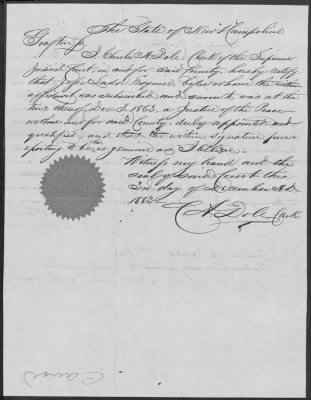 The State of New Hampshire
Grafton ss.
I Charles A. Dole Clerk of the Supreme
Judicial Court, in and for said County, hereby certify
that Ladd Esquire, before whom the within
affidavit was subscribed and sworn to was at the
time thereof Dec 1. 1863, a Justice of the Peace
within and for said County, duly appointed and
qualified, and that the within signature pur-
porting to be his genuine as I believe.
Witness my hand and the
seal of said Court this
2nd day of December A.D.
1863
C. A. Dole Clerk